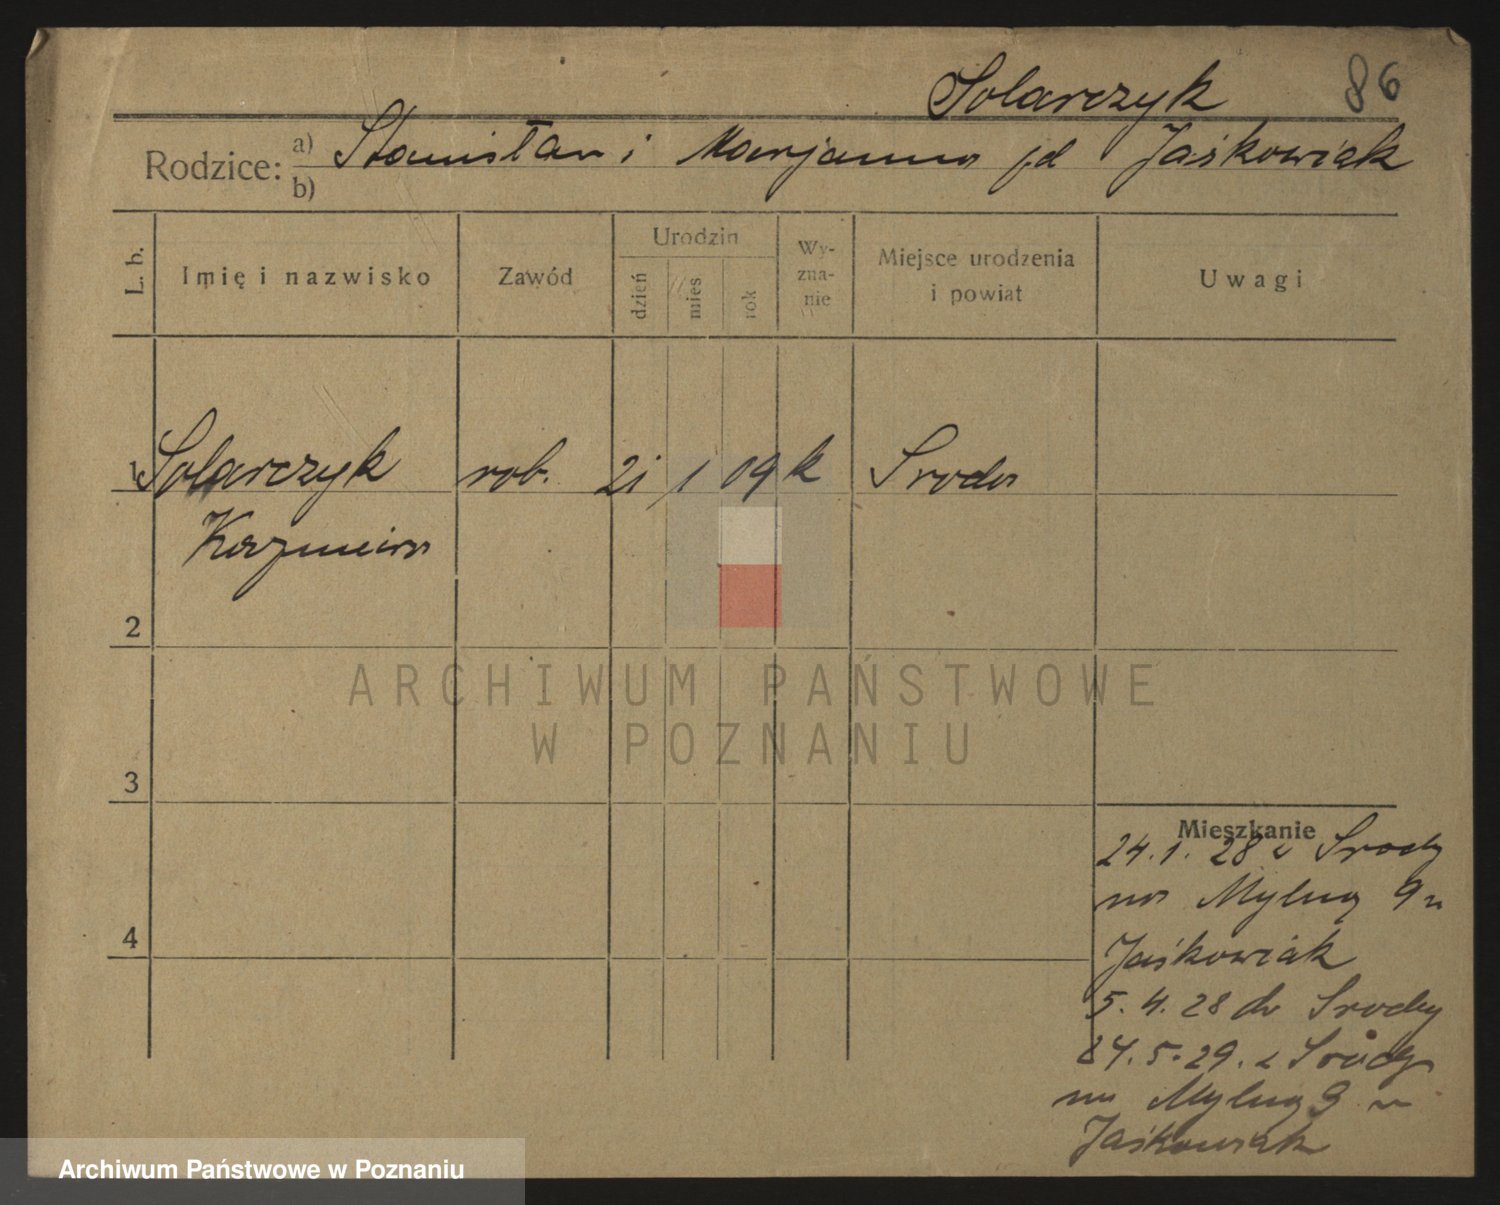 Solarczyk 86
Rodzice: a) Stanisław i Marjanna jd Jaśkowiak
b)
L. b. Imię i nazwisko Zawód Urodzin dzień mies rok Wyznanie Miejsce urodzenia i powiat Uwagi
1 Solarczyk rob. 21 1 09 k Środa
Kazmiera
2
3
4
Mieszkanie
24. 1. 28 z Środy
na Mylną 9 u
Jaśkowiak
5. 4. 28 do Środy
24. 5. 29. z Środy
na Mylną 9 u
Jaśkowiak
ARCHIWUM PAŃSTWOWE
W POZNANIU
Archiwum Państwowe w Poznaniu